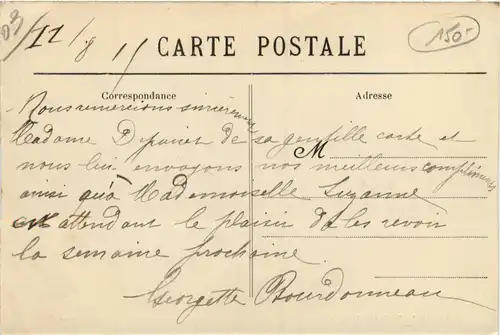 03/11/8 11
150-
CARTE POSTALE
Correspondance
Adresse
M
Nous remercions sincèrement
Madame de sa gentille carte et
nous lui envoyons nos meilleurs compliments
ainsi qu'à Mademoiselle Suzanne
en attendant le plaisir de les revoir
la semaine prochaine.
Georgette Bourdonneau